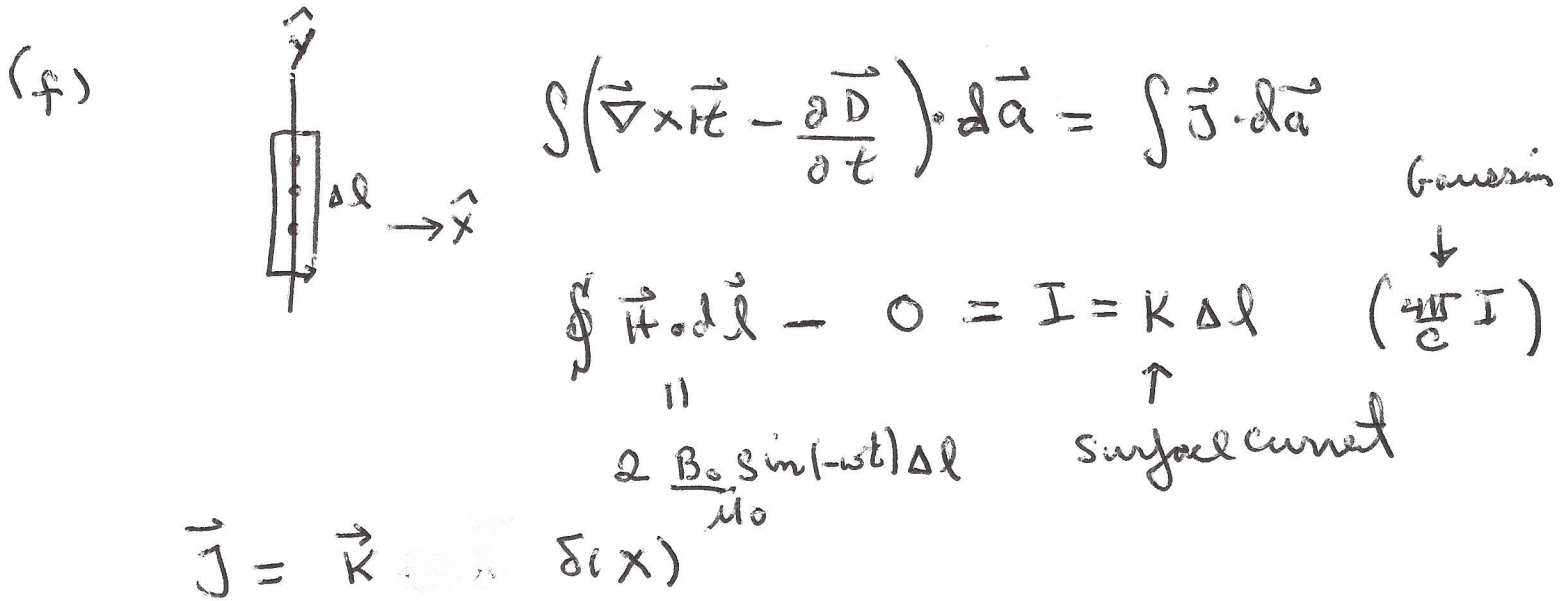 (f)
ŷ
Δl → x̂
∫(∇⃗ × H⃗ − ∂D⃗/∂t) · da⃗ = ∫ J⃗ · da⃗
Gaussian
↓
∮ H⃗ · dl⃗ − 0 = I = K Δl (4π/c I)
|| ↑
2 B₀/μ₀ sin(-ωt) Δl surface current
J⃗ = K⃗ δ(x)